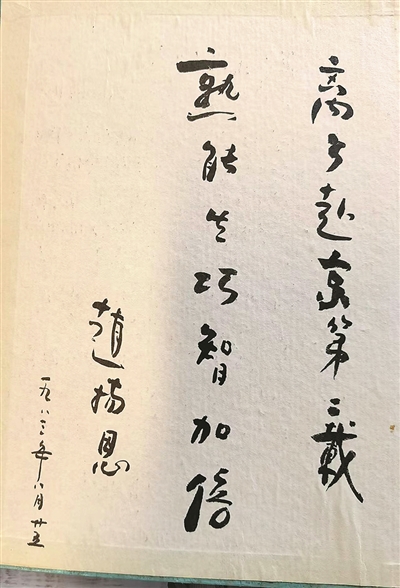 离乡赴京第二載
熟能生巧智加倍
趙揚恩
一九八三年八月廿五